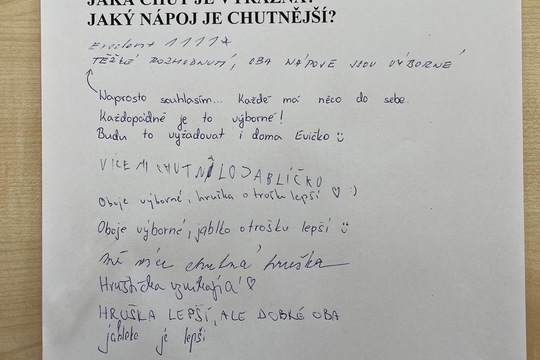 JAKÁ CHUŤ JE VÝRAZNÁ?
JAKÝ NÁPOJ JE CHUTNĚJŠÍ?
1111*
TĚŽKÉ ROZHODNUTÍ, OBA NÁPOJE JSOU VÝBORNÉ
Naprosto souhlasím... Každé má něco do sebe.
Každopádně je to výborné!
Budu to vyžadovat i doma Evičko ☺
VÍCE MI CHUTNALO JABLÍČKO
Oboje výborné, hruška o trošku lepší ♡ :)
Oboje výborné, jablko o trošku lepší ☺
mě více chutná hruška
Hruštička vynikající ♡
HRUŠKA LEPŠÍ, ALE DOBRÉ OBA
je lepší